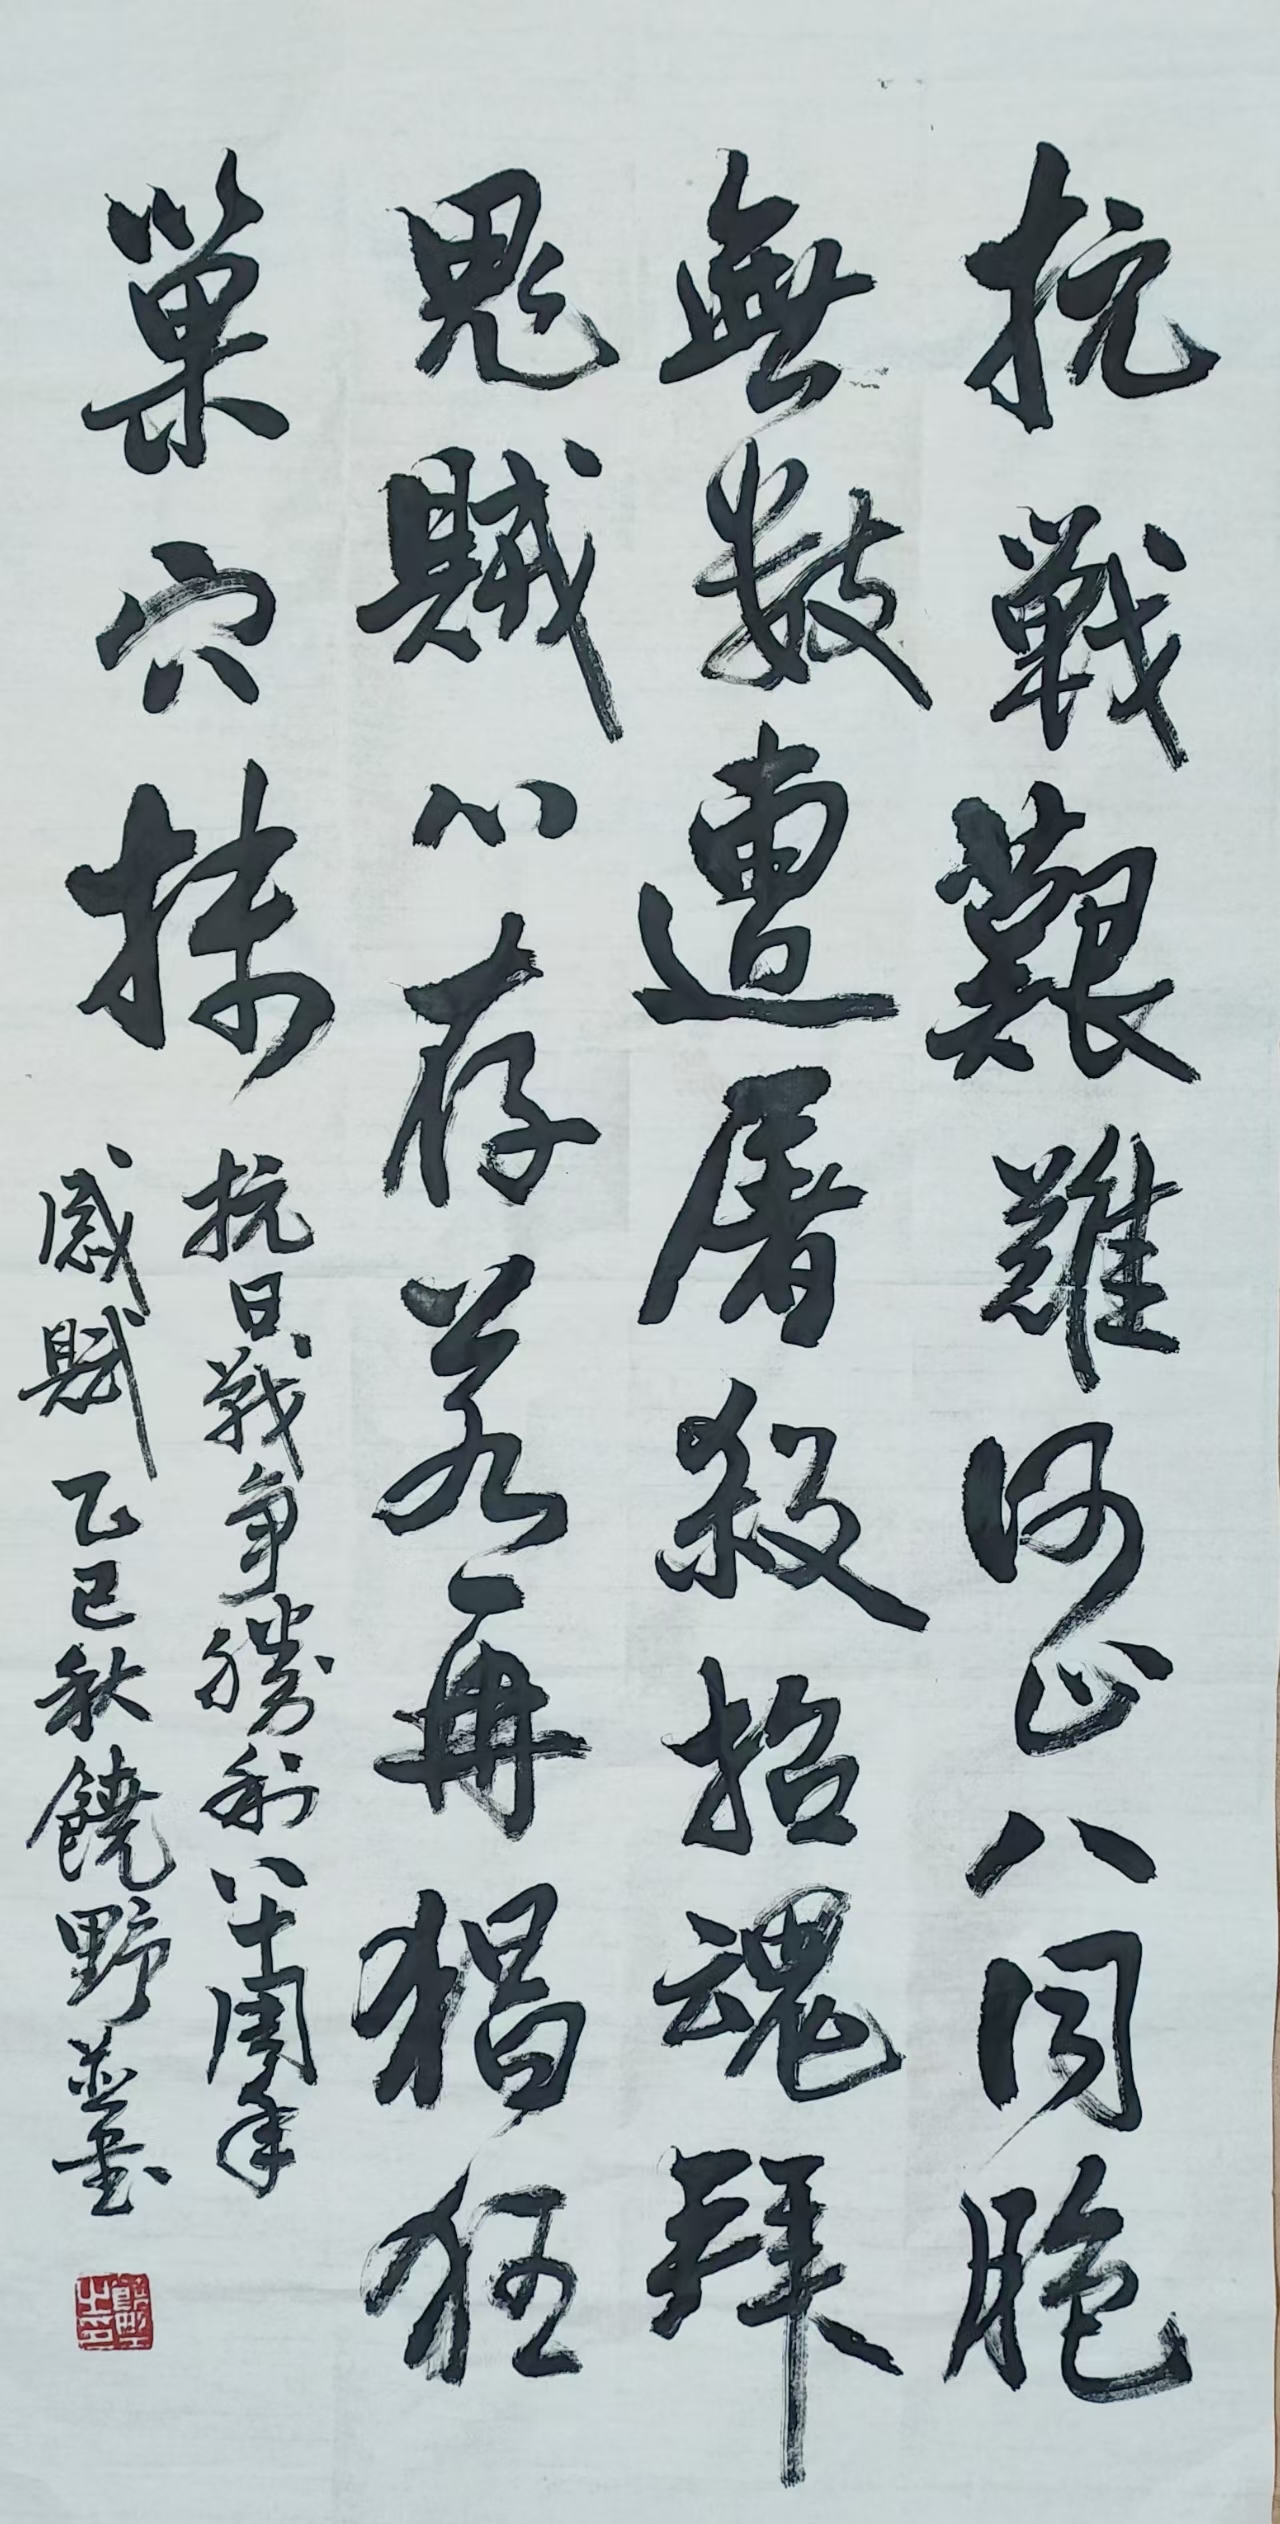 抗戰艱難何止八同胞
無數遭屠殺招魂拜
鬼賊心存若再猖狂
巢穴抹
抗日戰争勝利八十周年
感賦乙巳秋饒野並書